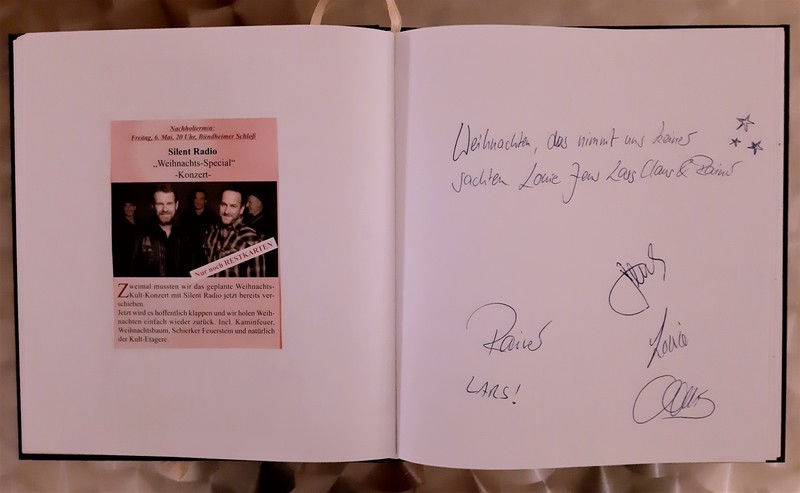 Nachholtermin:
Freitag, 6. Mai, 20 Uhr, Bündheimer Schloß
Silent Radio
„Weihnachts-Special“
-Konzert-
Nur noch RESTKARTEN
Zweimal mussten wir das geplante Weihnachts-
Kult-Konzert mit Silent Radio jetzt bereits ver-
schieben.
Jetzt wird es hoffentlich klappen und wir holen Weih-
nachten einfach wieder zurück. Incl. Kaminfeuer,
Weihnachtsbaum, Schierker Feuerstein und natürlich
der Kult-Etagere.
Weihnachten, das nimmt uns keiner
sachten Louie Jens Lars Claus & Rainer
Jens
Rainer
Louie
LARS!
Claus